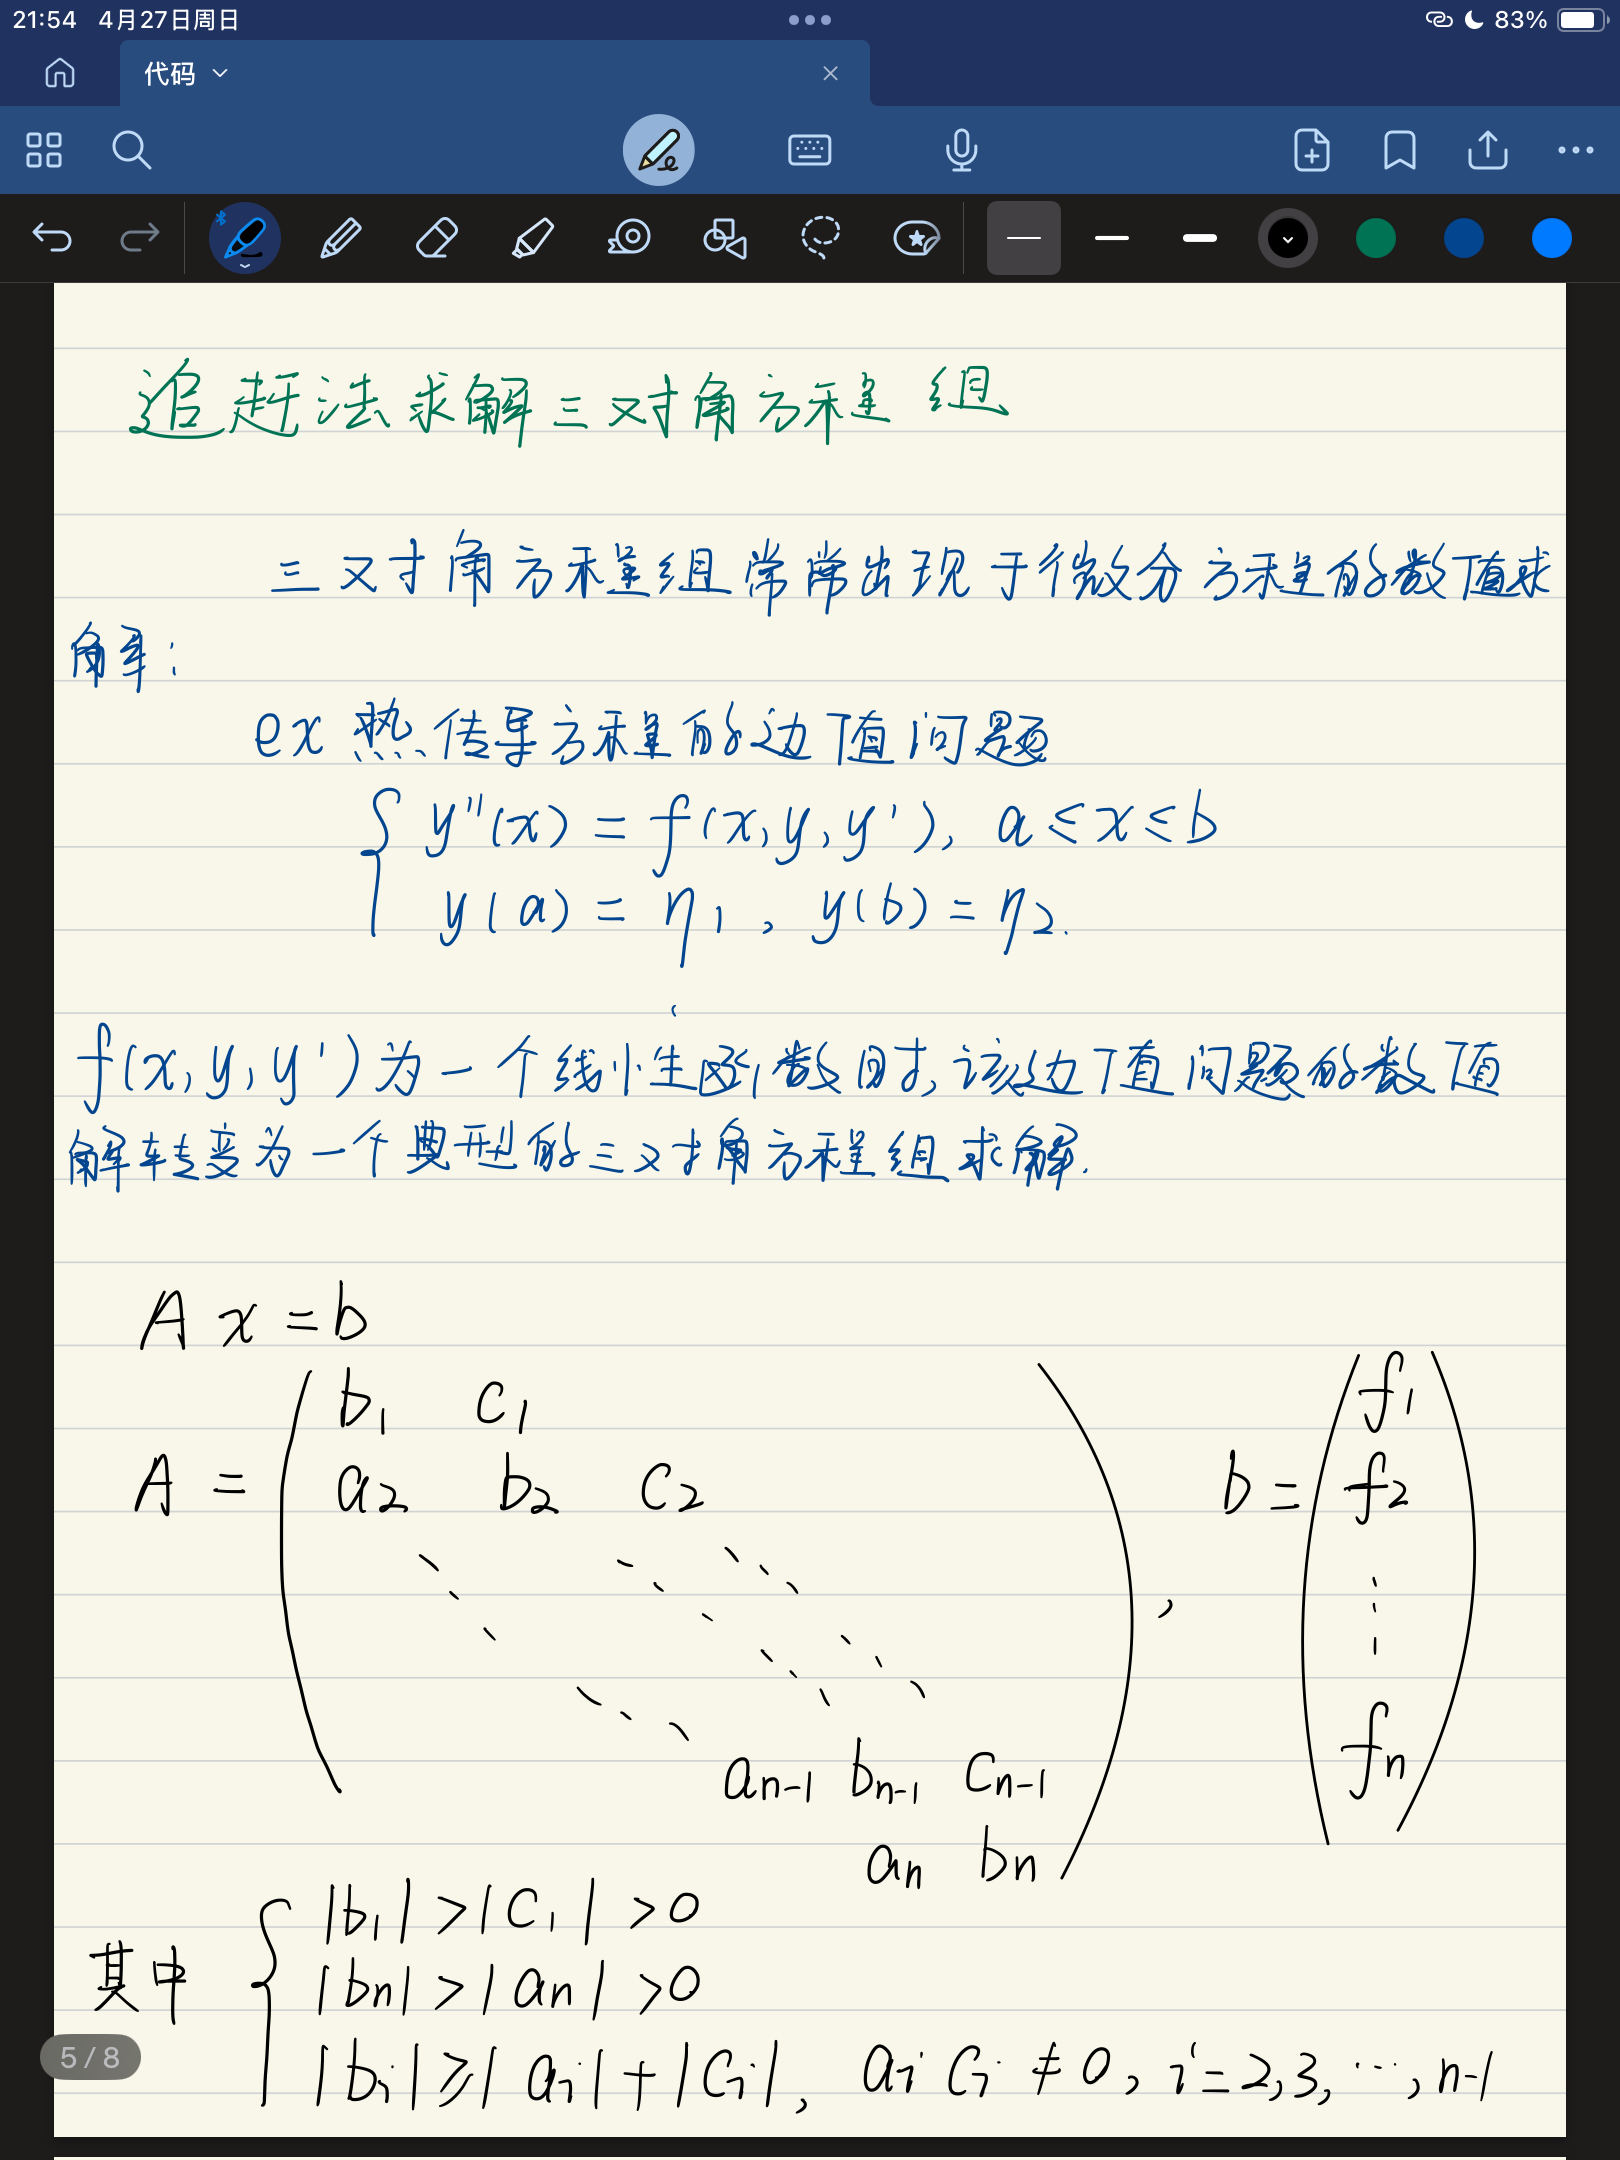 21:54 4月27日周日 83%
代码
追赶法求解三对角方程组
三对角方程组常常出现于微分方程的数值求
解:
ex 热传导方程的边值问题
{ y''(x) = f(x, y, y'), a ≤ x ≤ b
y(a) = η₁, y(b) = η₂.
f(x, y, y')为一个线性函数时,该边值问题的数值
解转变为一个典型的三对角方程组求解.
A x = b
b₁ c₁ f₁
A = a₂ b₂ c₂ , b = f₂
aₙ₋₁ bₙ₋₁ cₙ₋₁ fₙ
aₙ bₙ
|b₁| > |c₁| > 0
其中 { |bₙ| > |aₙ| > 0
|bᵢ| ≥ |aᵢ| + |cᵢ|, aᵢ cᵢ ≠ 0, i = 2,3, ⋯, n-1
5 / 8